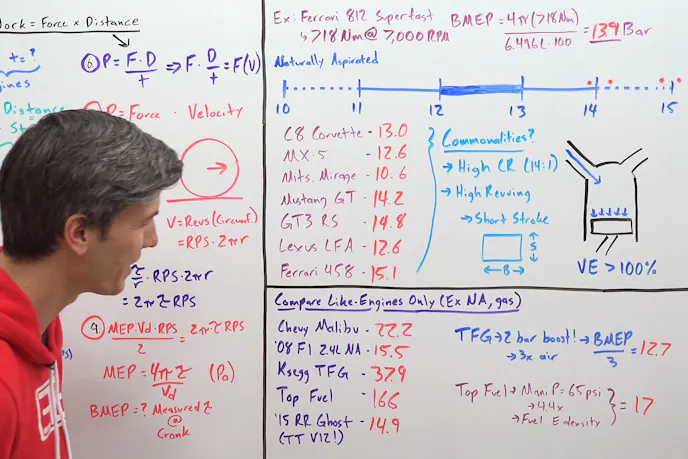 Work = Force x Distance
t = ?
gines
Distance
St
⑥ P = F·D/t ⇒ F·D/t = F(V)
P = Force · Velocity
V = Revs (Circumf.)
= RPS·2πr
τ/r · RPS·2πr
= 2πτRPS
⑨ MEP·Vd·RPS/2 = 2πτRPS
MEP = 4πτ/Vd (Pa)
BMEP = ? Measured τ
@
Crank
Ex: Ferrari 812 Superfast
↳ 718 Nm @ 7,000 RPM
BMEP = 4π(718Nm)/6.496L·100 = 13.9 Bar
Naturally Aspirated
10 11 12 13 14 15
C8 Corvette - 13.0
MX-5 - 12.6
Mits. Mirage - 10.6
Mustang GT - 14.2
GT3 RS - 14.8
Lexus LFA - 12.6
Ferrari 458 - 15.1
Commonalities?
→ High CR (14:1)
→ High Revving
→ Short Stroke
S
← B →
VE > 100%
Compare Like-Engines Only (Ex NA, gas)
Chevy Malibu - 22.2
'08 F1 2.4L NA - 15.5
K'segg TFG - 37.9
Top Fuel - 166
'15 RR Ghost - 14.9
(TT V12!)
TFG → 2 bar boost! → BMEP/3 = 12.7
→ 3x air
Top Fuel → Mani P = 65psi
→ 4.4x
→ Fuel E density
} = 17